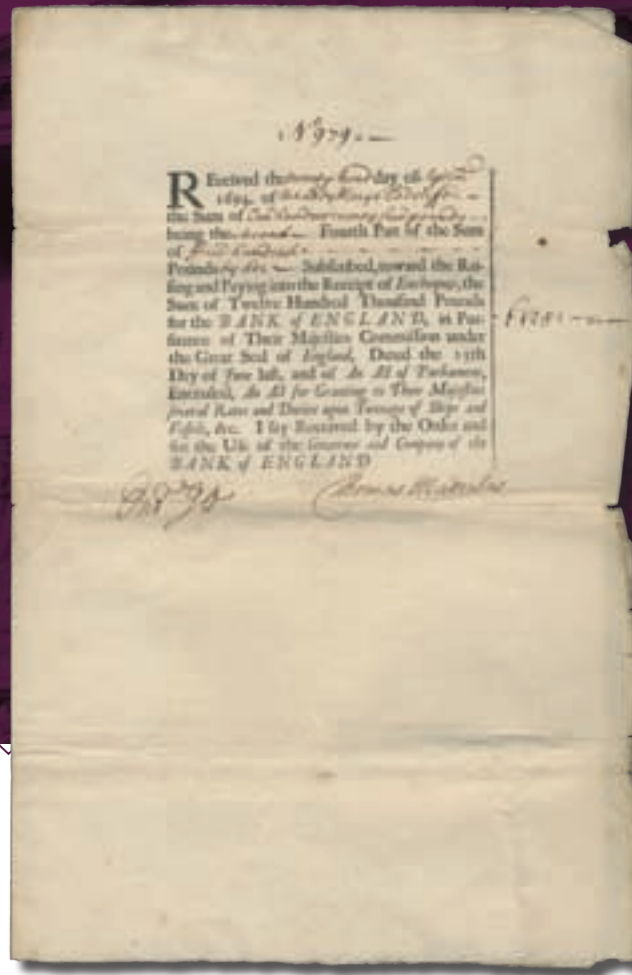 No 979
REceived the day of
1694. of
the Sum of One hundred twenty five pounds
being the Fourth Part of the Sum
of five hundred
Pounds by Subscribed, toward the Rai-
sing and Paying into the Receipt of Exchequer, the
Sum of Twelve Hundred Thousand Pounds
for the BANK of ENGLAND, in Pur-
suance of Their Majesties Commission under
the Great Seal of England, Dated the 15th
Day of June last, and of An Act of Parliament,
Entituled, An Act for Granting to Their Majesties
several Rates and Duties upon Tunnage of Ships and
Vessels, &c. I say Received by the Order and
for the Use of the Governor and Company of the
BANK of ENGLAND
Thomas